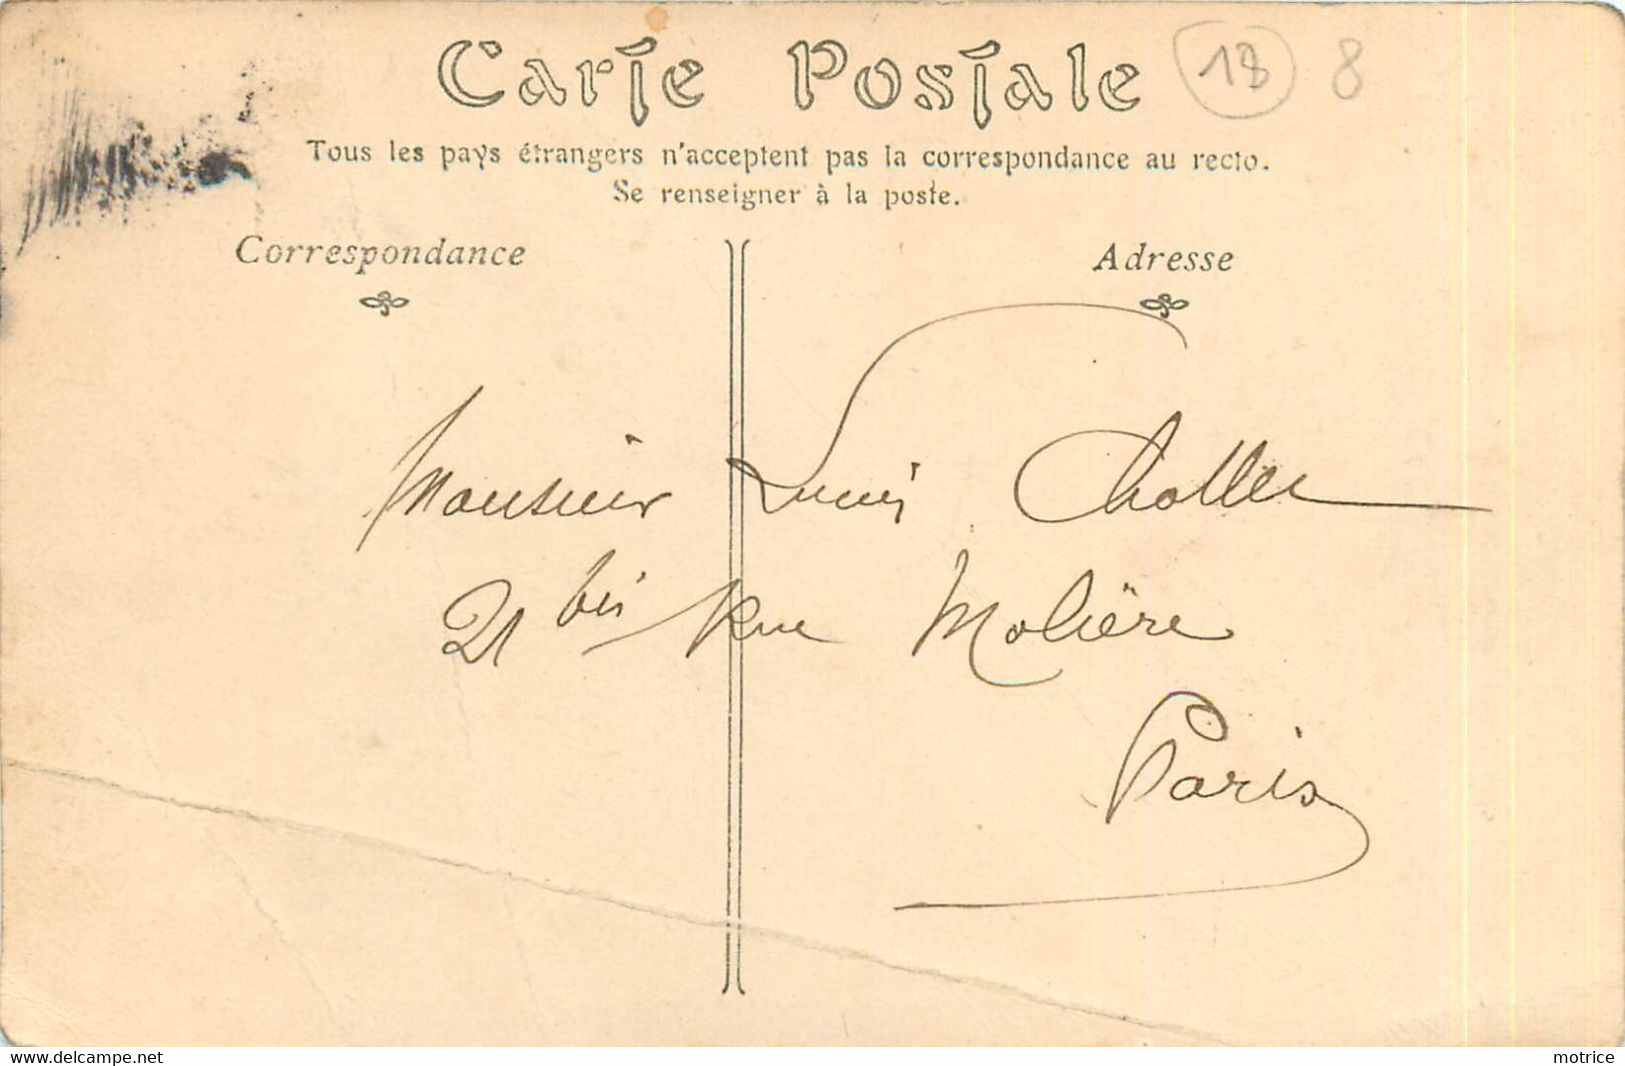 Carte Postale 18 8
Tous les pays étrangers n'acceptent pas la correspondance au recto.
Se renseigner à la poste.
Correspondance
Adresse
Monsieur
21 bis Rue Molière
Paris
www.delcampe.net
motrice